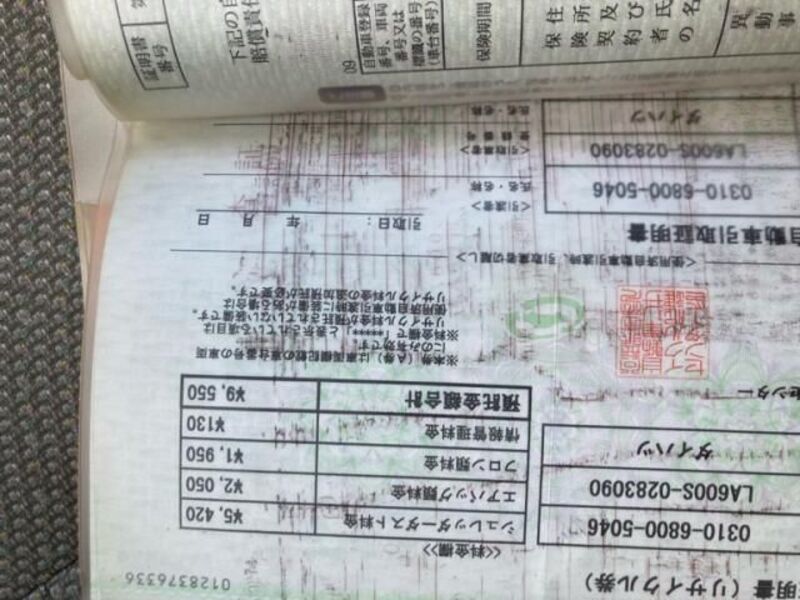 証明書
番号
下記の自
賠償責任
自動車登録
番号、車両
番号又は
標識の番号
(車台番号)
保険期間
保険契約者の
住所及び氏名
異動事
明書(リサイクル券)
0128376336
<<料金欄>>
シュレッダーダスト料金 ¥5,420
エアバッグ類料金 ¥2,050
フロン類料金 ¥1,950
情報管理料金 ¥130
預託金額合計 ¥9,550
0310-6800-5046
LA600S-0283090
ダイハツ
センター
※本券(A券)は車両欄記載の車台番号の車両
にのみ有効です。
※料金欄で「*****」と表示されている項目は
リサイクル料金が預託されていない装備です。
使用済自動車引取時に装備がある場合は
リサイクル料金の追加預託が必要です。
<使用済自動車引渡時、引取業者切離し>
自動車引取証明書
引取日: 年 月 日
0310-6800-5046
LA600S-0283090
ダイハツ
<引渡者>
氏名・名称
<引取業者>
氏名・名称